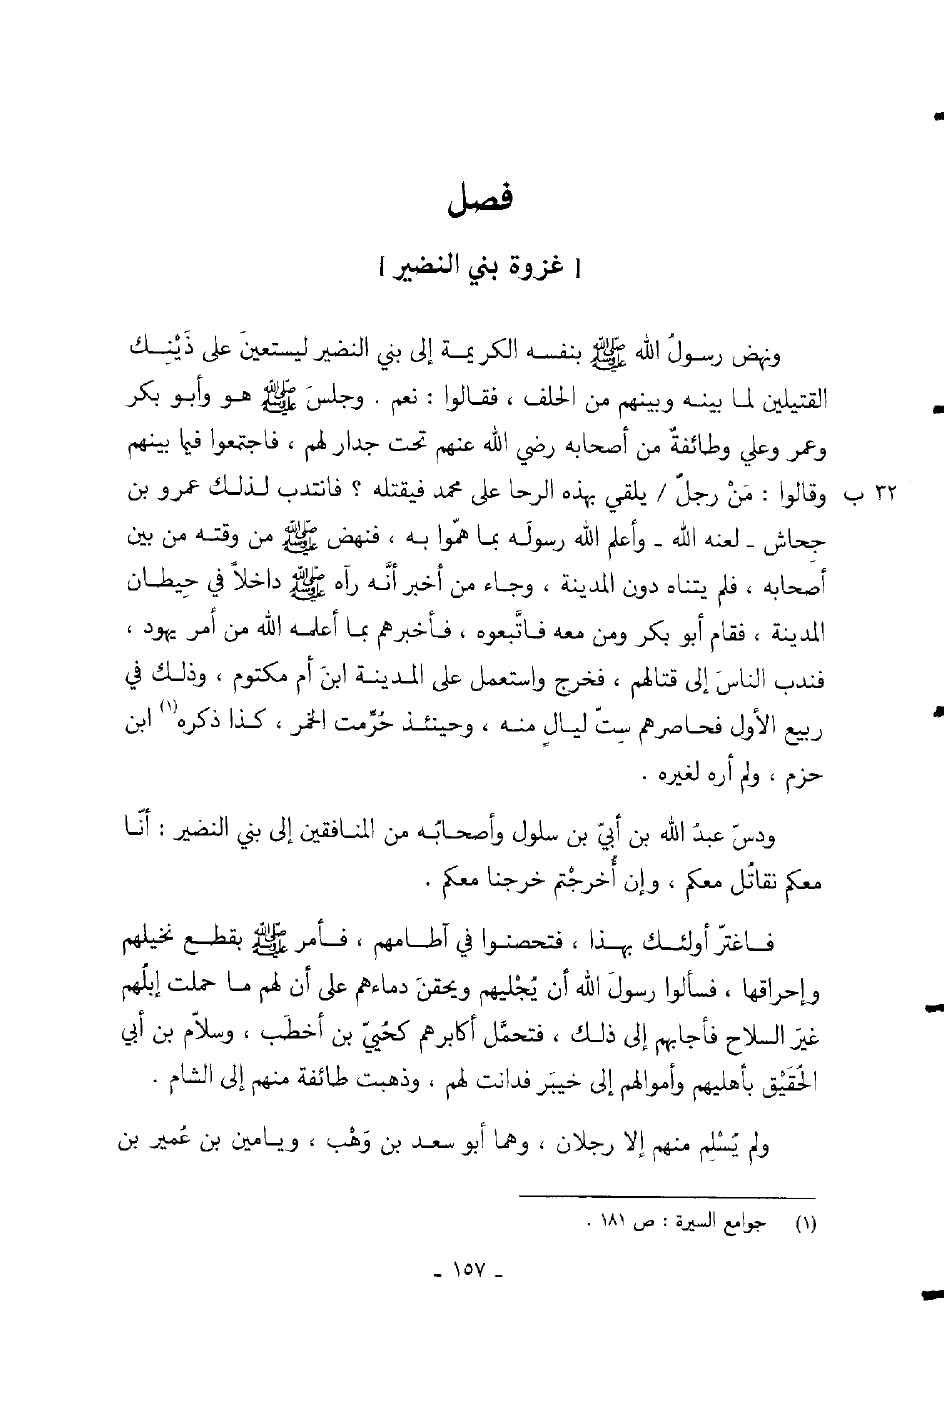 فصل
[ غزوة بني النضير ]
ونهض رسولُ الله ﷺ بنفسه الكريمة إلى بني النضير ليستعينَ على ذَيْنِك
القتيلين لما بينه وبينهم من الحلف ، فقالوا : نعم . وجلسَ ﷺ هو وأبو بكر
وعمر وعلي وطائفةٌ من أصحابه رضي الله عنهم تحت جدار لهم ، فاجتمعوا فيما بينهم
٣٢ ب وقالوا : مَنْ رجلٌ / يلقي بهذه الرحا على محمد فيقتله ؟ فانتدب لذلك عمرو بن
جحاش ـ لعنه الله ـ وأعلم الله رسولَه بما همّوا به ، فنهض ﷺ من وقته من بين
أصحابه ، فلم يتناه دون المدينة ، وجاء من أخبر أنَّه رآه ﷺ داخلاً في حيطان
المدينة ، فقام أبو بكر ومن معه فاتَّبعوه ، فأخبرهم بما أعلمه الله من أمر يهود ،
فندب الناسَ إلى قتالهم ، فخرج واستعمل على المدينة ابنَ أم مكتوم ، وذلك في
ربيع الأول فحاصرهم ستّ ليالٍ منه ، وحينئذ حُرِّمت الخمر ، كذا ذكره(١) ابن
حزم ، ولم أره لغيره .
ودسّ عبدُ الله بن أبيّ بن سلول وأصحابُه من المنافقين إلى بني النضير : أنّا
معكم نقاتُل معكم ، وإن أُخرجْتم خرجنا معكم .
فاغترّ أولئك بهذا ، فتحصنوا في آطامهم ، فأمر ﷺ بقطع نخيلهم
وإحراقها ، فسألوا رسولَ الله أن يُجْليهم ويحقنَ دماءهم على أن لهم ما حملت إبلُهم
غيرَ السلاح فأجابهم إلى ذلك ، فتحمَّل أكابرهم كحُييّ بن أخطَب ، وسلاّم بن أبي
الحُقَيْق بأهليهم وأموالهم إلى خيبَر فدانت لهم ، وذهبت طائفة منهم إلى الشام .
ولم يُسْلِم منهم إلا رجلان ، وهما أبو سعد بن وَهْب ، ويامين بن عُمير بن
(١) جوامع السيرة : ص ١٨١ .
ـ ١٥٧ ـ